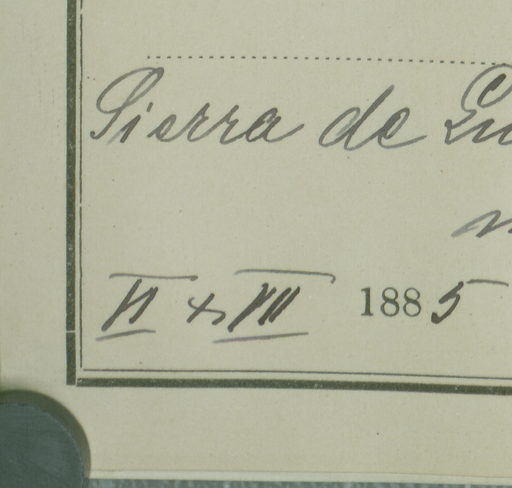 Sierra de
VI + VII 1885